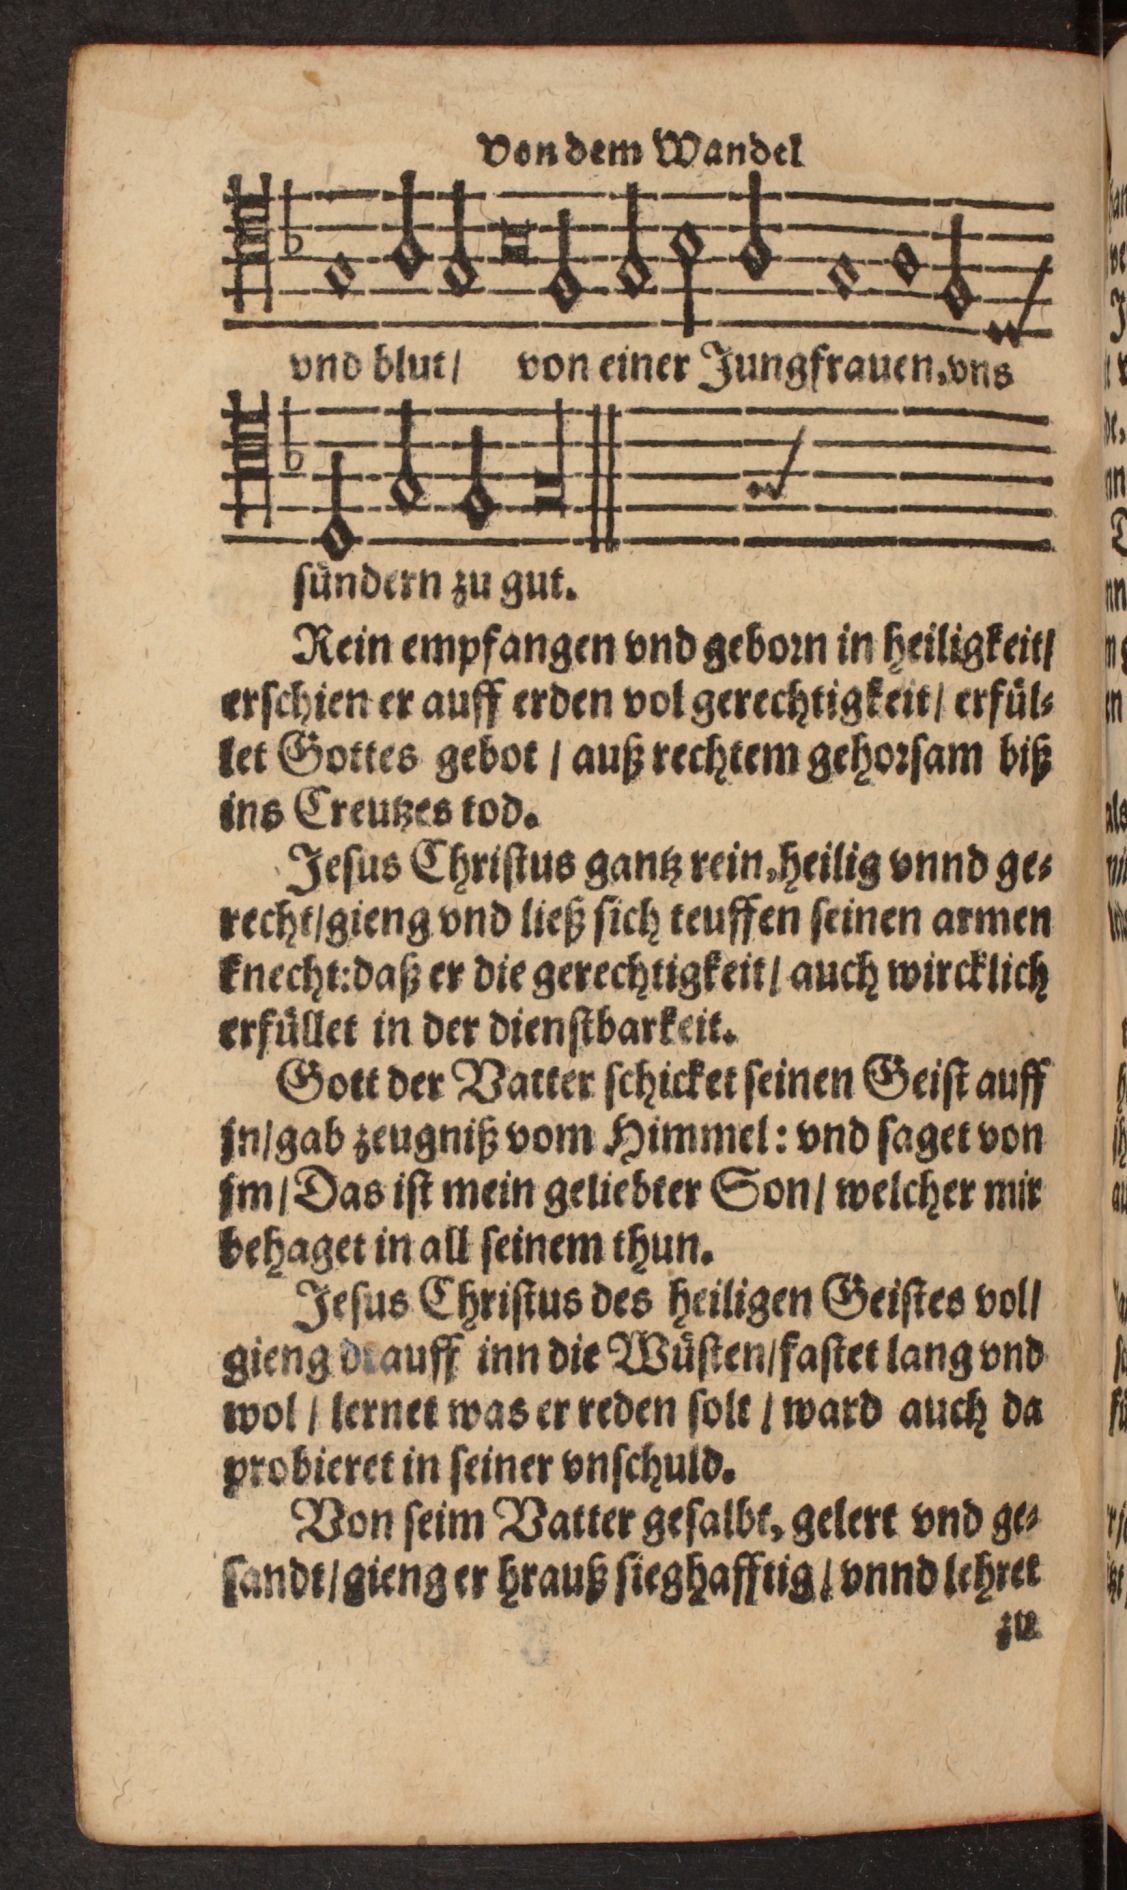 Von dem Wandel
vnd blut/ von einer Jungfrauen, vns
sündern zu gut.
Rein empfangen vnd geborn in heiligkeit/
erschien er auff erden vol gerechtigkeit/ erfül-
let Gottes gebot / auß rechtem gehorsam biß
ins Creutzes tod.
Jesus Christus gantz rein, heilig vnnd ge-
recht/ gieng vnd ließ sich teuffen seinen armen
knecht: daß er die gerechtigkeit/ auch wircklich
erfüllet in der dienstbarkeit.
Gott der Vatter schicket seinen Geist auff
jn/ gab zeugniß vom Himmel: vnd saget von
jm/ Das ist mein geliebter Son/ welcher mir
behaget in all seinem thun.
Jesus Christus des heiligen Geistes vol/
gieng drauff inn die Wüsten/ fastet lang vnd
wol / lernet was er reden solt / ward auch da
probieret in seiner vnschuld.
Von seim Vatter gesalbt, gelert vnd ge-
sandt/ gieng er hrauß sieghafftig/ vnnd lehret
zu